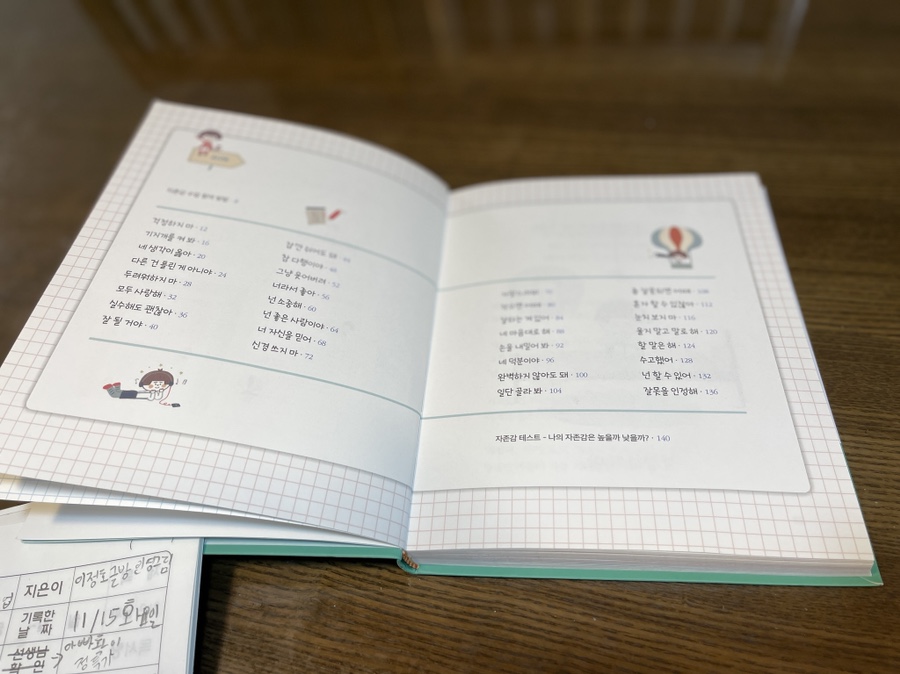 걱정하지 마 · 12
기지개를 켜 봐 · 16
네 생각이 옳아 · 20
다른 건 틀린 게 아니야 · 24
두려워하지 마 · 28
모두 사랑해 · 32
실수해도 괜찮아 · 36
잘 될 거야 · 40
참 다행이야 · 48
그냥 웃어버려 · 52
너라서 좋아 · 56
넌 소중해 · 60
넌 좋은 사람이야 · 64
너 자신을 믿어 · 68
신경 쓰지 마 · 72
잘하는 게 있어 · 84
네 마음대로 해 · 88
손을 내밀어 봐 · 92
네 덕분이야 · 96
완벽하지 않아도 돼 · 100
일단 골라 봐 · 104
혼자 할 수 있잖아 · 112
눈치 보지 마 · 116
울지 말고 말로 해 · 120
할 말은 해 · 124
수고했어 · 128
넌 할 수 있어 · 132
잘못을 인정해 · 136
자존감 테스트 - 나의 자존감은 높을까 낮을까? · 140
지은이
기록한
날 짜
11/15
선생님
확 인